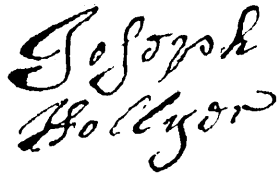 Joseph
Hollyer